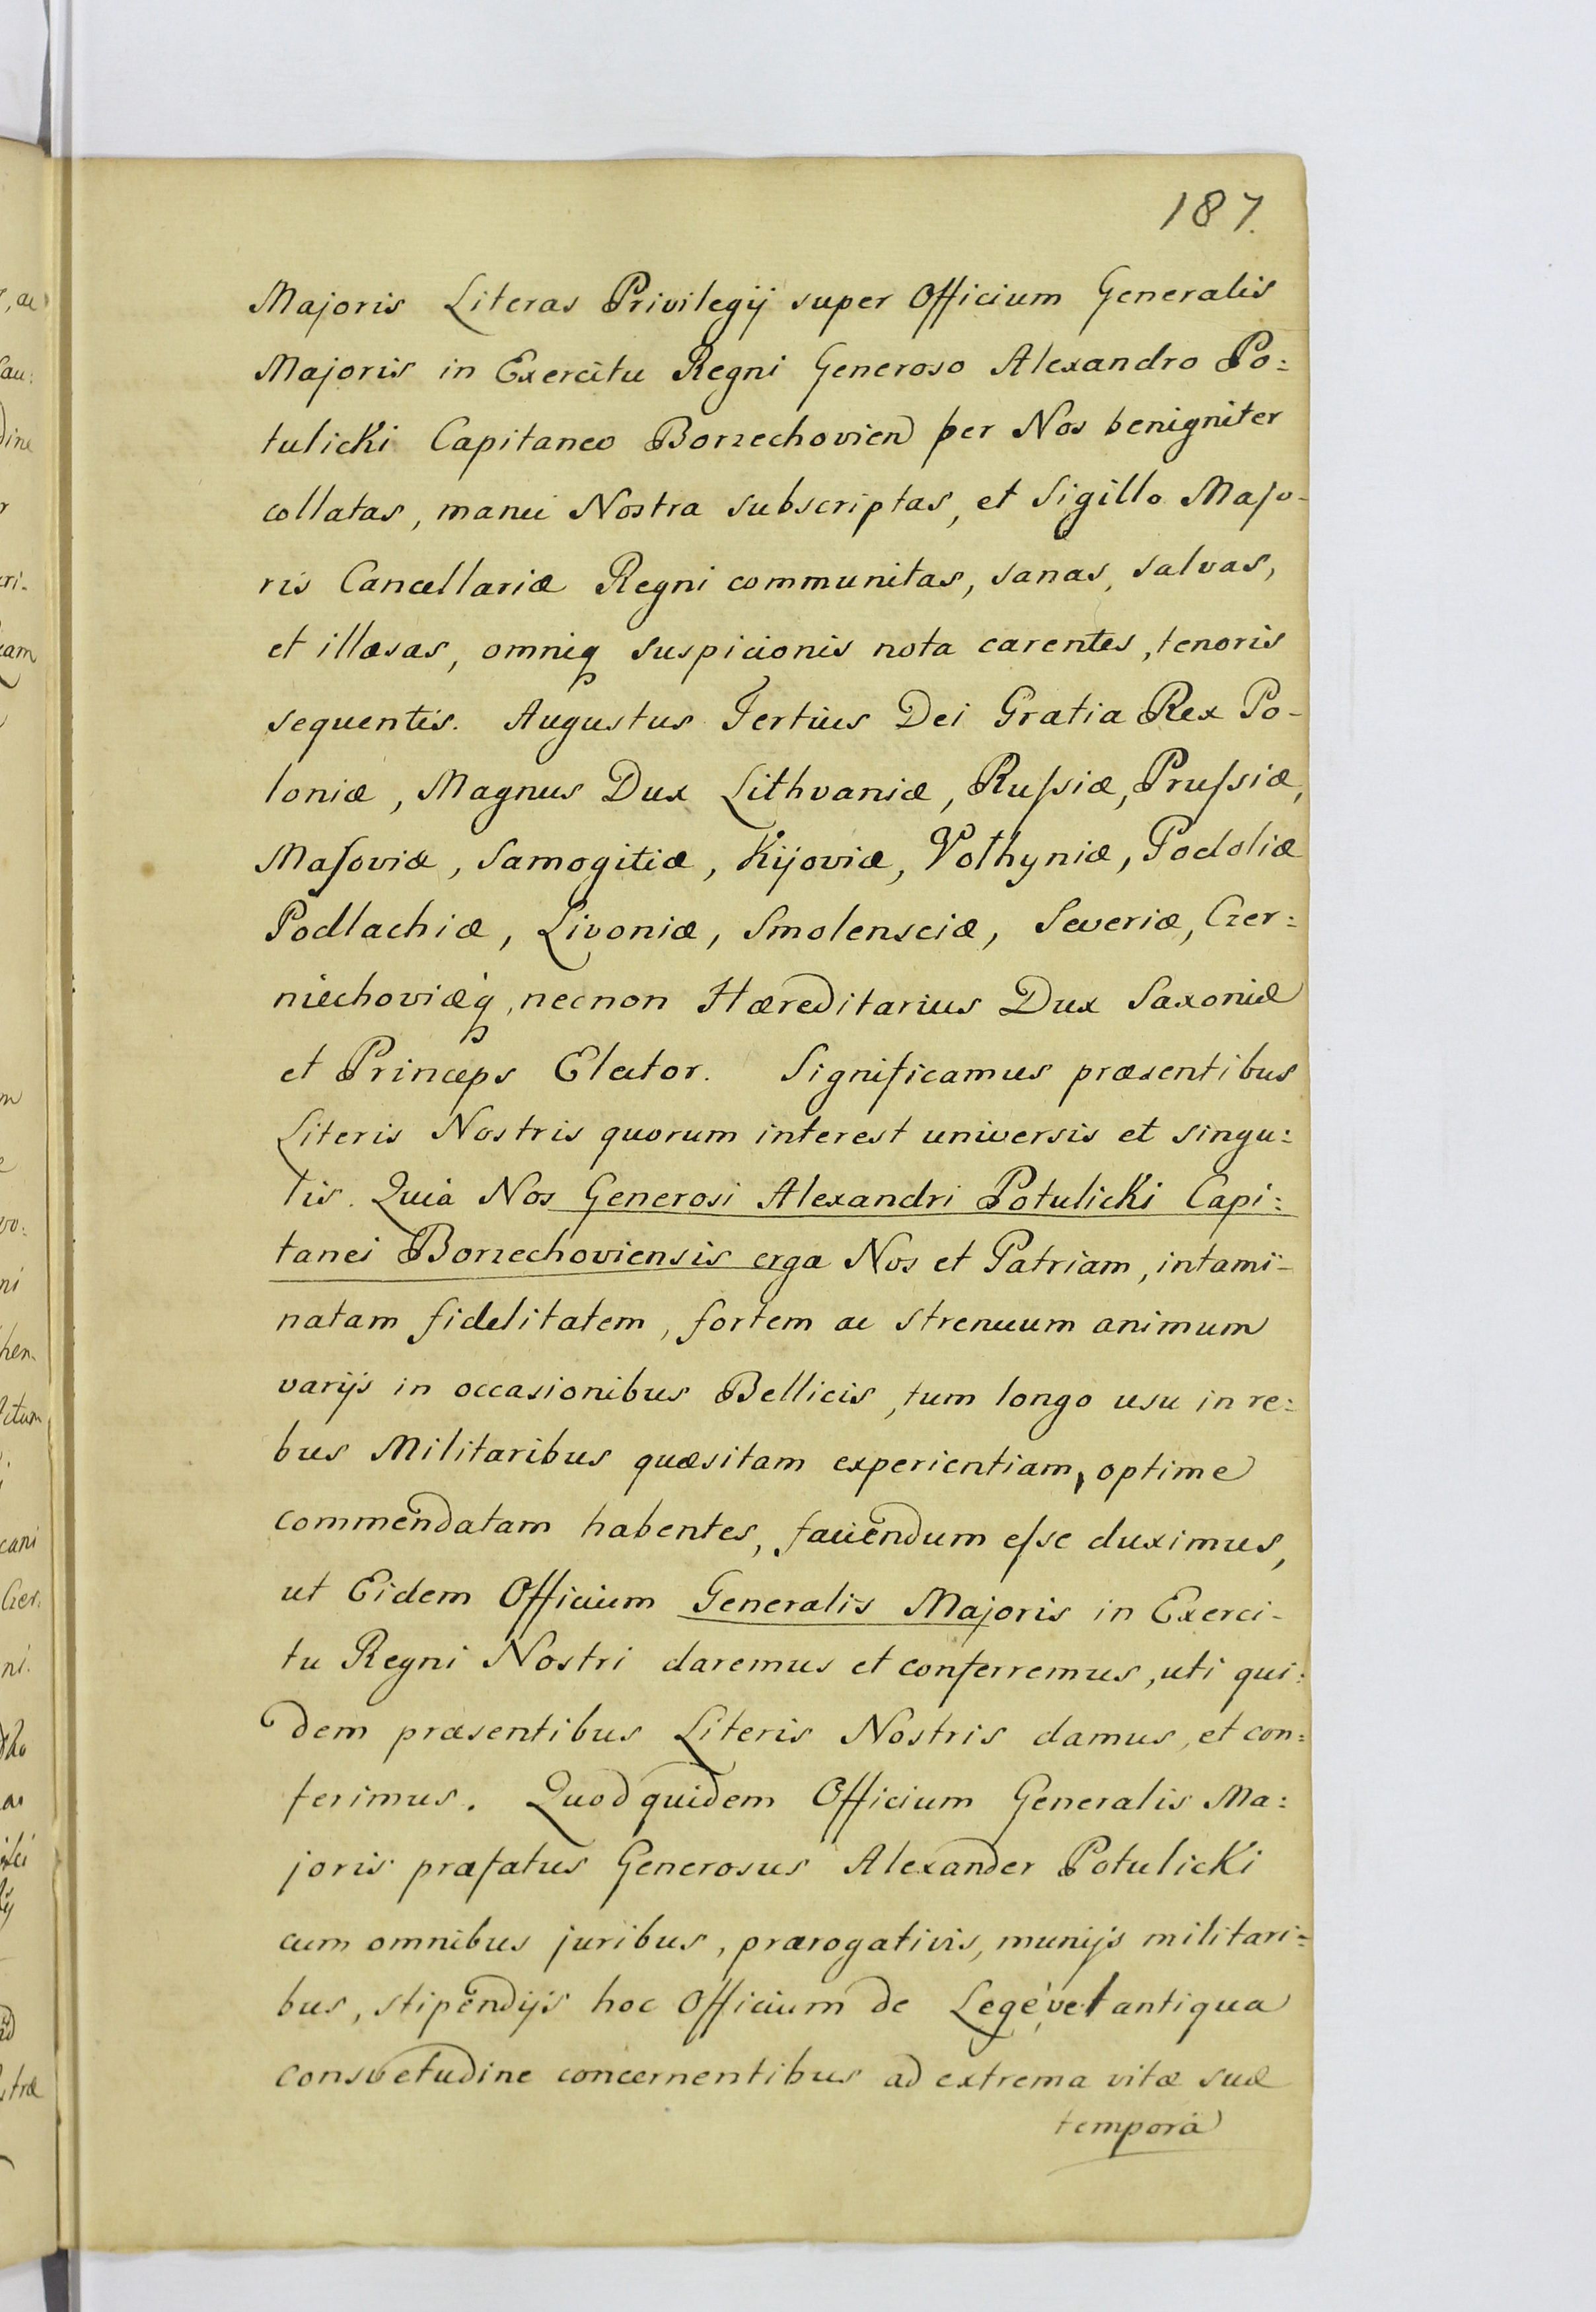 187.
Majoris Literas Privilegij super Officium Generalis
Majoris in Exercitu Regni Generoso Alexandro Po:
tulicki Capitaneo Borzechovien per Nos benigniter
collatas, manu Nostra subscriptas, et Sigillo Majo-
ris Cancellariæ Regni communitas, sanas, salvas,
et illæsas, omniq suspicionis nota carentes, tenoris
sequentis. Augustus Tertius Dei Gratia Rex Po-
loniæ, Magnus Dux Lithvaniæ, Ruſsiæ, Pruſsiæ,
Maſoviæ, Samogitiæ, Kijoviæ, Volhyniæ, Podoliæ
Podlachiæ, Livoniæ, Smolensciæ, Severiæ, Czer:
niechoviæq, necnon Hæreditarius Dux Saxoniæ
et Princeps Elector. Significamus præsentibus
Literis Nostris quorum interest universis et singu:
lis. Quia Nos Generosi Alexandri Potulicki Capi:
tanei Borzechoviensis erga Nos et Patriam, intami-
natam fidelitatem, fortem ac strenuum animum
varijs in occasionibus Bellicis, tum longo usu in re:
bus Militaribus quæsitam experientiam, optime
commendatam habentes, faciendum eſse duximus,
ut Eidem Officium Generalis Majoris in Exerci-
tu Regni Nostri daremus et conferremus, uti qui:
dem præsentibus Literis Nostris damus, et con:
ferimus. Quod quidem Officium Generalis Ma:
joris præfatus Generosus Alexander Potulicki
cum omnibus juribus, prærogativis, munijs militari=
bus, stipendijs hoc Officium de Lege, vel antiqua
consvetudine concernentibus ad extrema vitæ suæ
tempora